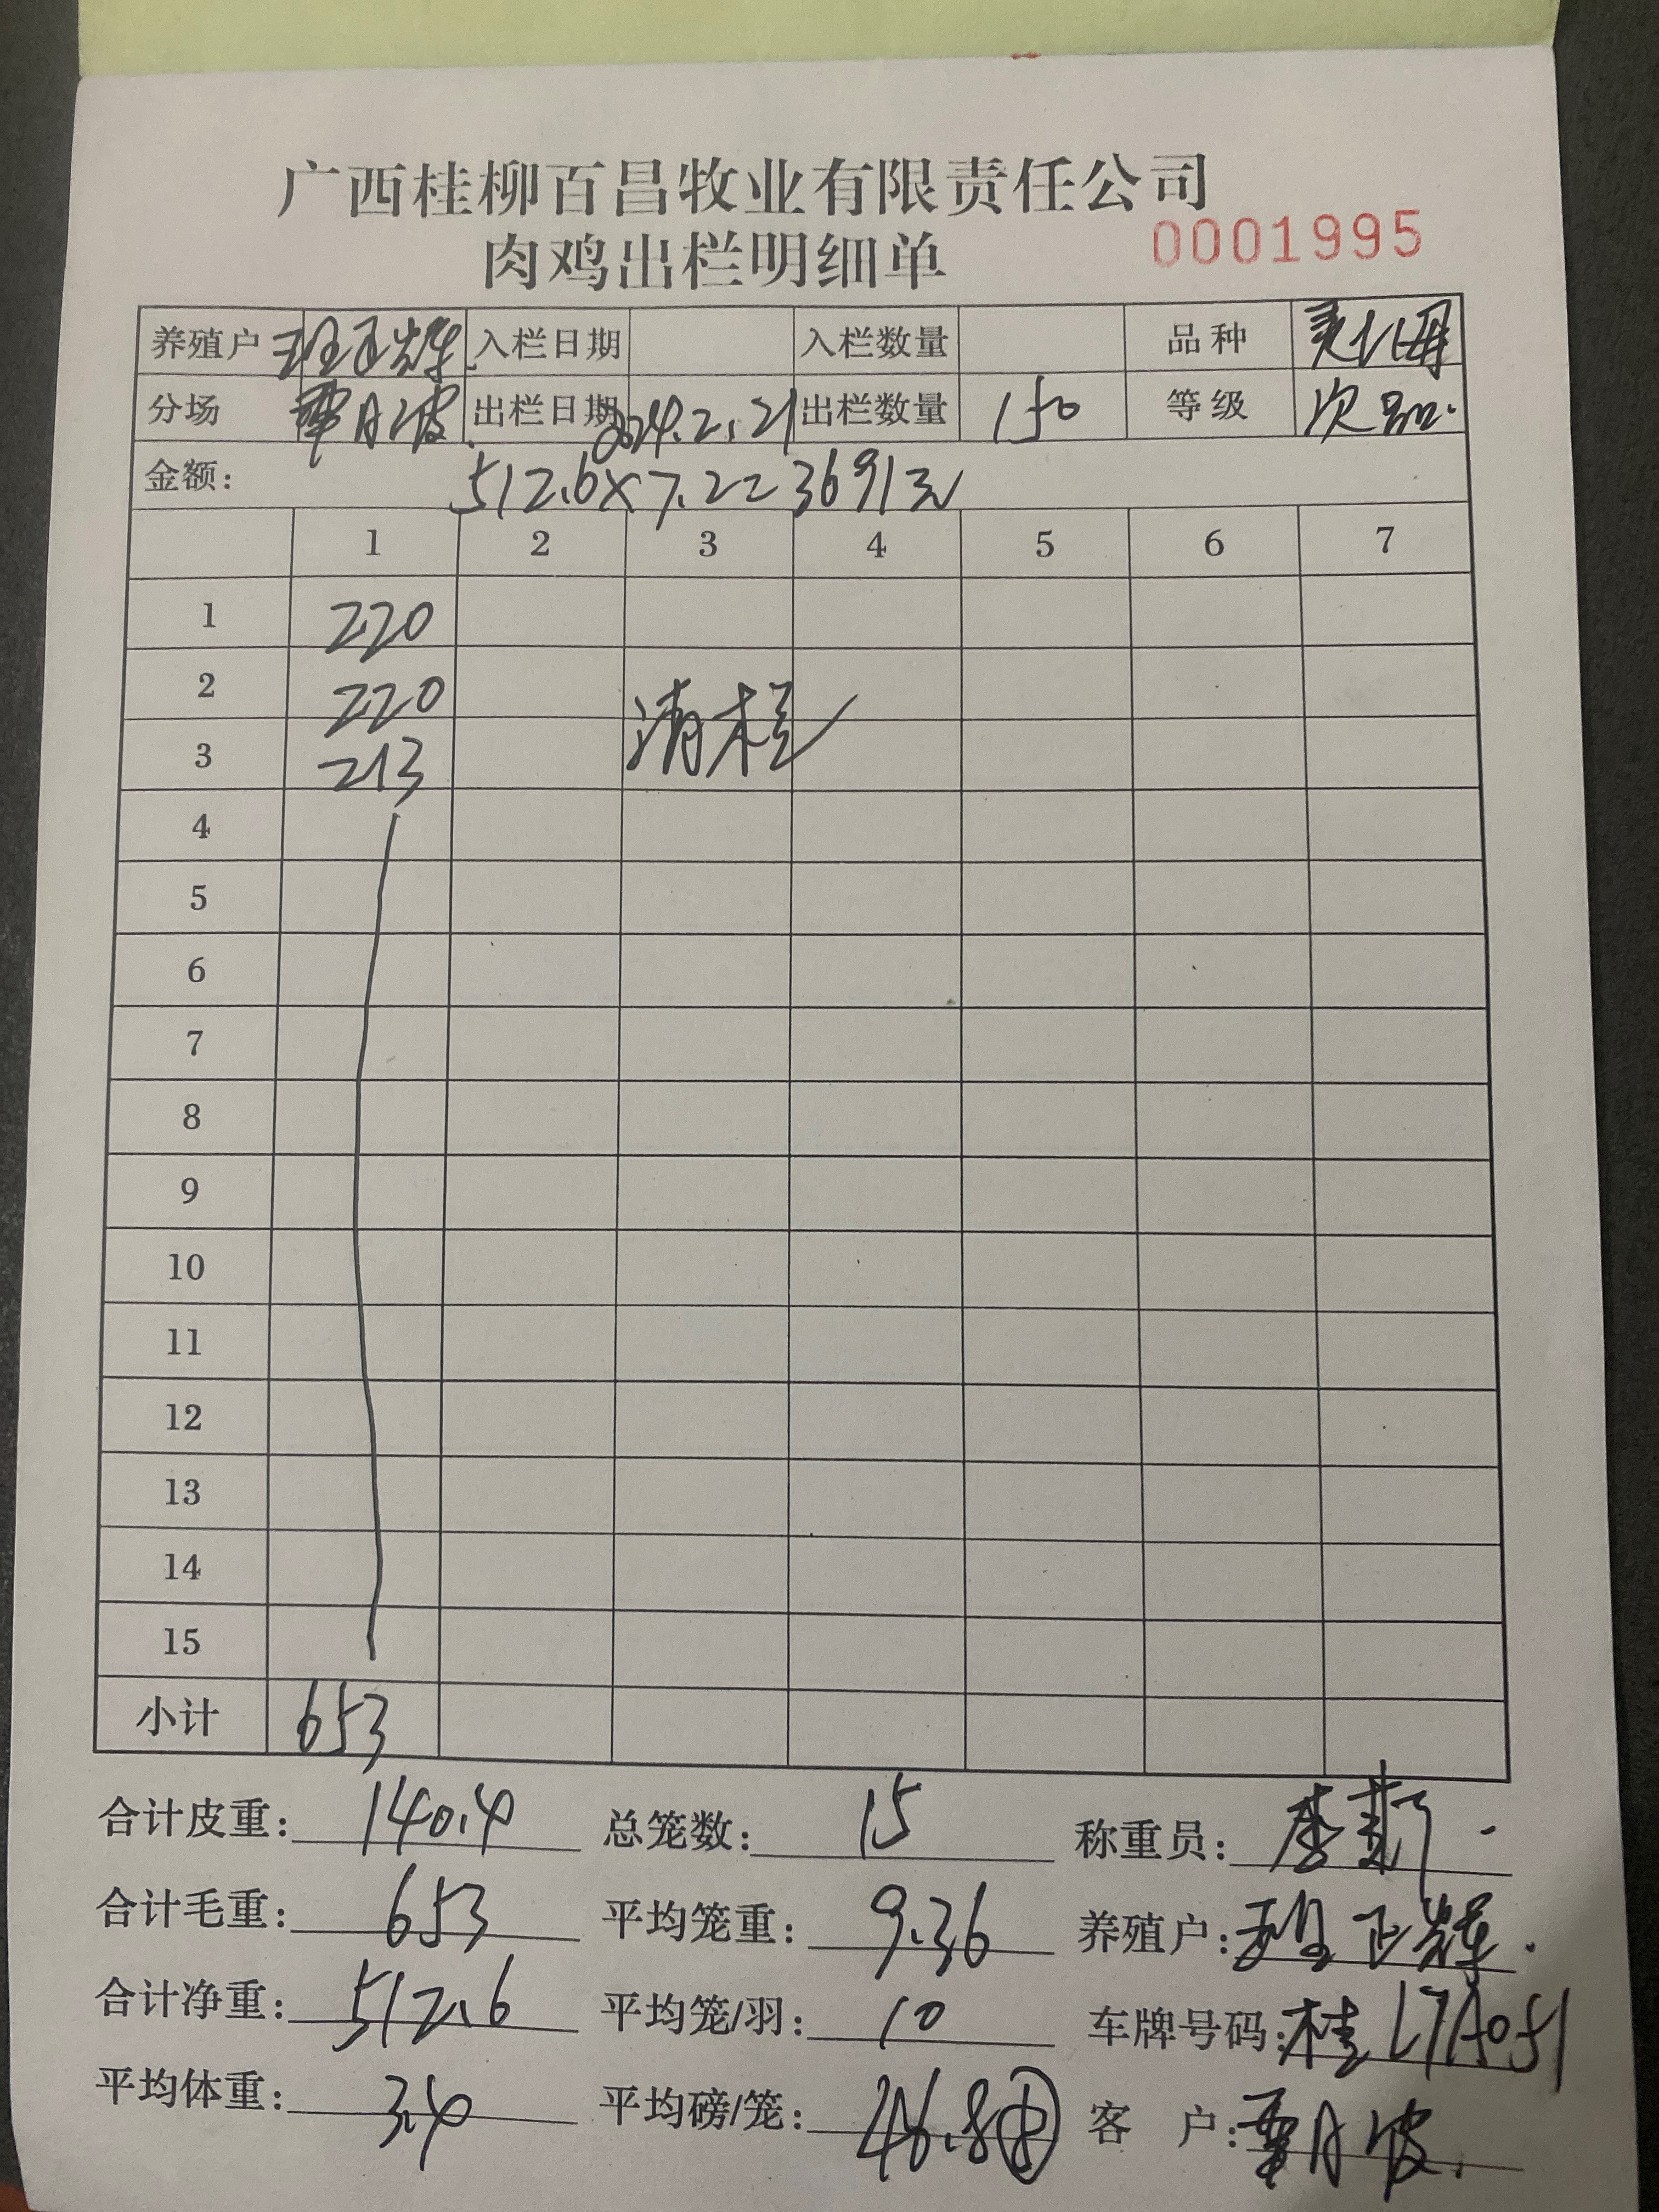 广西桂柳百昌牧业有限责任公司
肉鸡出栏明细单 0001995
养殖户 班正辉 入栏日期 入栏数量 品种
分场 覃月波 出栏日期 2024.2.21 出栏数量 150 等级 次品
金额: 512.6×7.2=3691元
1 2 3 4 5 6 7
1 220
2 220 清栏
3 213
4
5
6
7
8
9
10
11
12
13
14
15
小计 653
合计皮重: 140.4 总笼数: 15 称重员: 李
合计毛重: 653 平均笼重: 9.36 养殖户: 班正辉
合计净重: 512.6 平均笼/羽: 10 车牌号码: 桂L7A051
平均体重: 3.4 平均磅/笼: 46.8 客 户: 覃月波